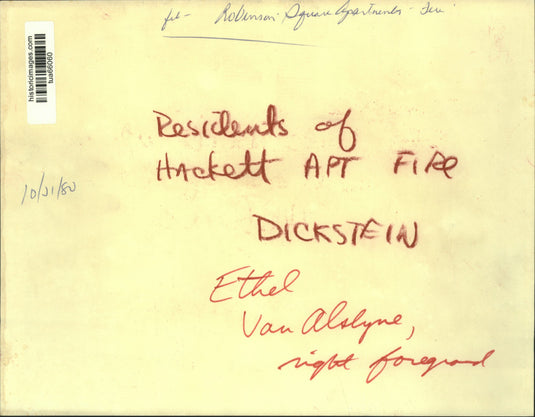 fil- Robinson Square Apartments - Fire
historicimages.com
tua66060
Residents of
Hackett APT FIRE
10/21/80
DICKSTEIN
Ethel
Van Alstyne,
right foreground